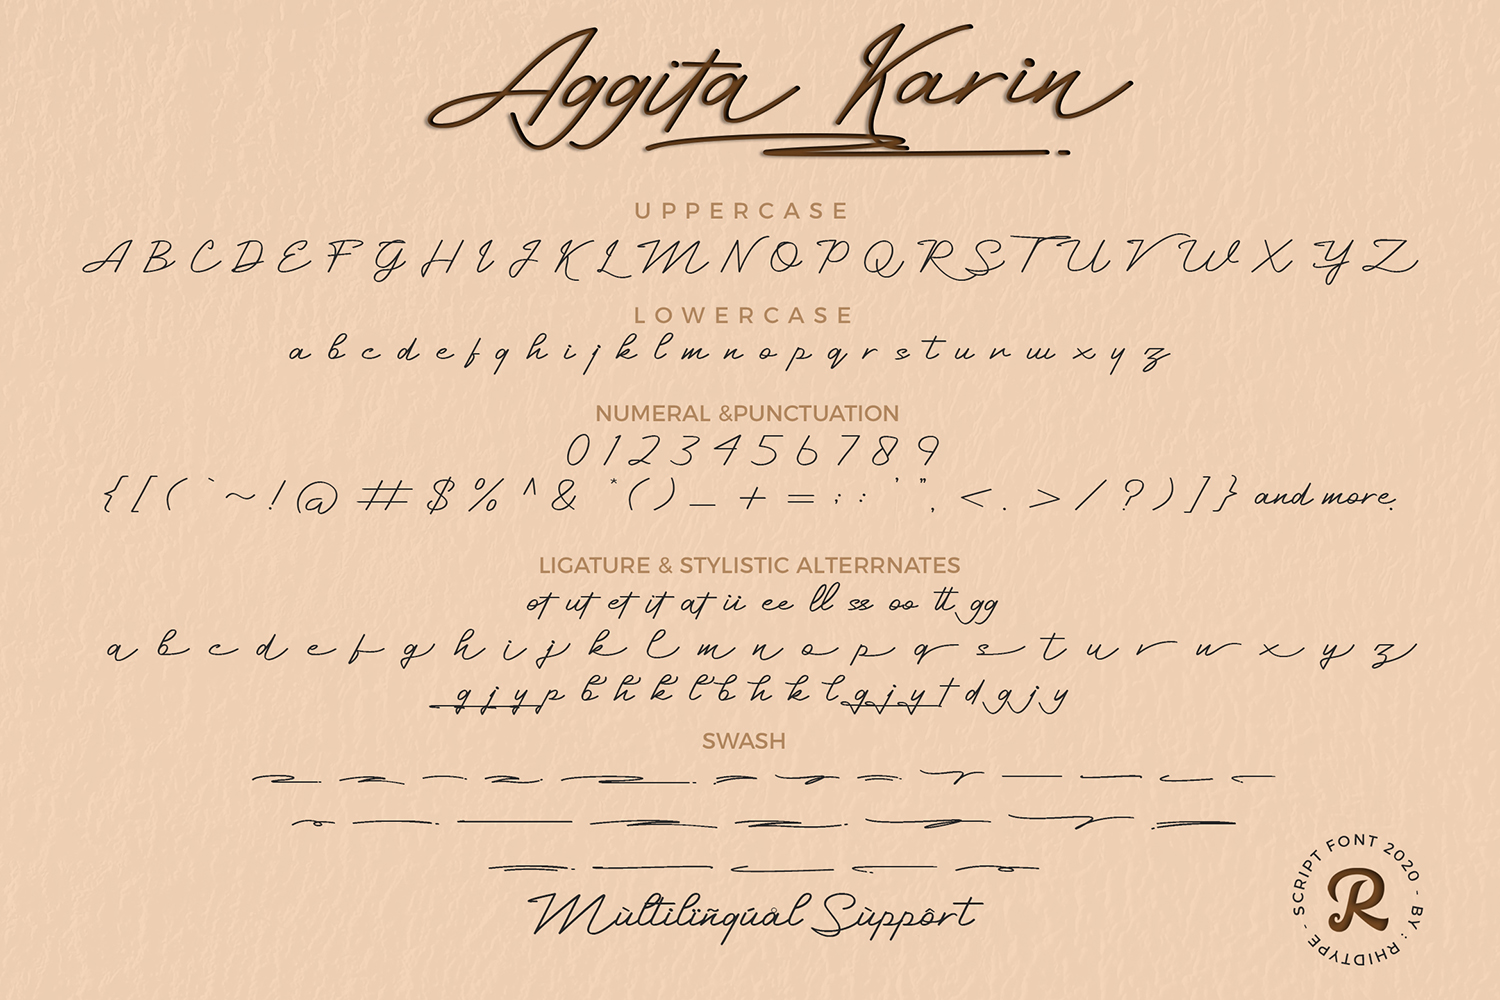 Aggita Karin
UPPERCASE
A B C D E F G H I J K L M N O P Q R S T U V W X Y Z
LOWERCASE
a b c d e f g h i j k l m n o p q r s t u v w x y z
NUMERAL &PUNCTUATION
0 1 2 3 4 5 6 7 8 9
{ [ ( ` ~ ! @ # $ % ^ & * ( ) _ + = ; : ' " , < . > / ? ) ] } and more.
LIGATURE & STYLISTIC ALTERRNATES
ot ut et it at ii ee ll ss oo tt gg
a b c d e f g h i j k l m n o p q r s t u r w x y z
g j y p b h k l b h k l g j y t d g j y
SWASH
Mùltilïñgúål Sùppôrt
SCRIPT FONT 2020 - BY : RHIDTYPE -
R